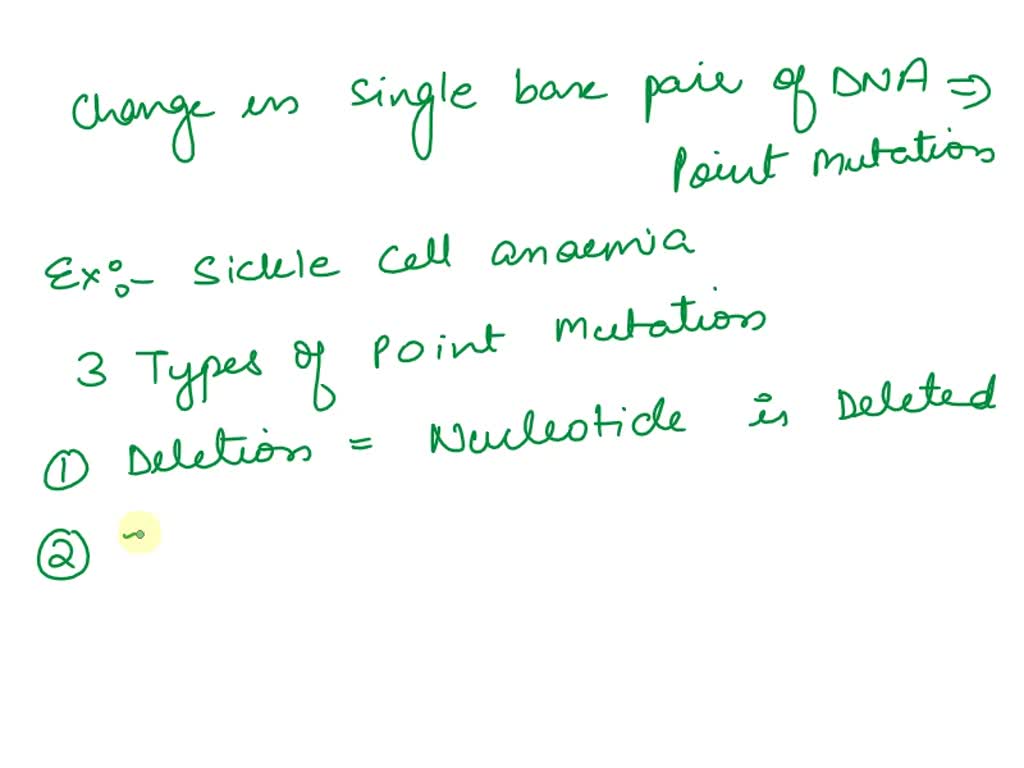 Change in single base pair of DNA ⇒
Point Mutation
Ex:- Sickle Cell anaemia
3 Types of Point Mutation
① Deletion = Nucleotide is Deleted
②